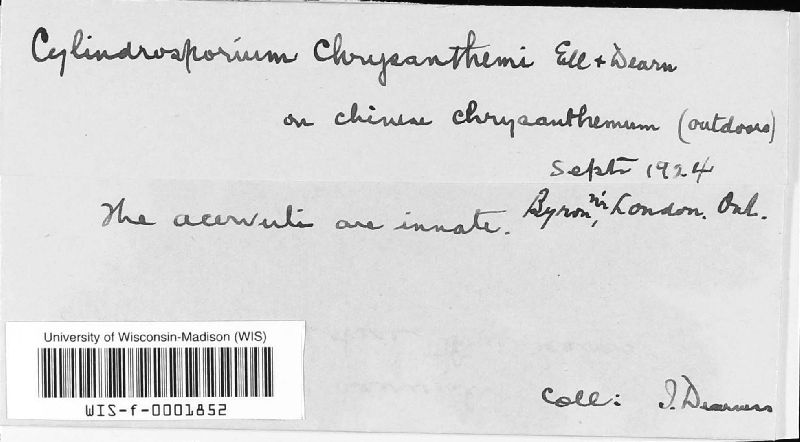 Cylindrosporium Chrysanthemi Ell + Dearn
on chinese chrysanthemum (outdoors)
Sept 1924
The acervuli are innate. Byron, nr London. Ont.
University of Wisconsin-Madison (WIS)
WIS-f-0001852
Coll: J. Dearness